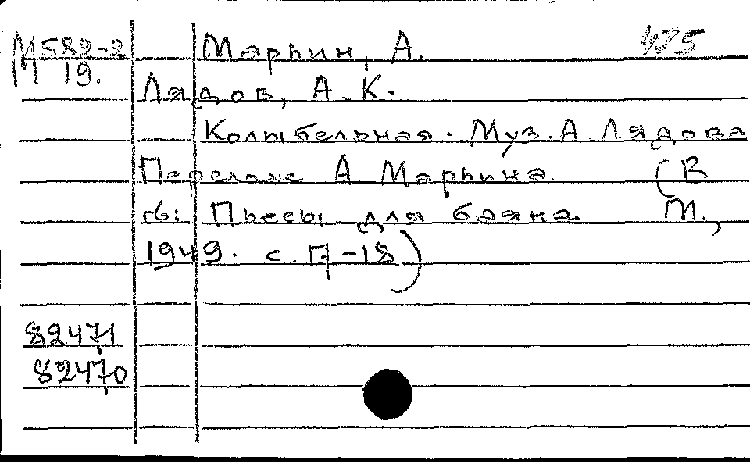 М582-2 Маркин, А. 475
М 19.
Лядов, А.К.
Колыбельная. Муз. А. Лядова
Перелож А Маркина. (В
сб: Пьесы для баяна. М.,
1949. с. 17-18)
82471
82470